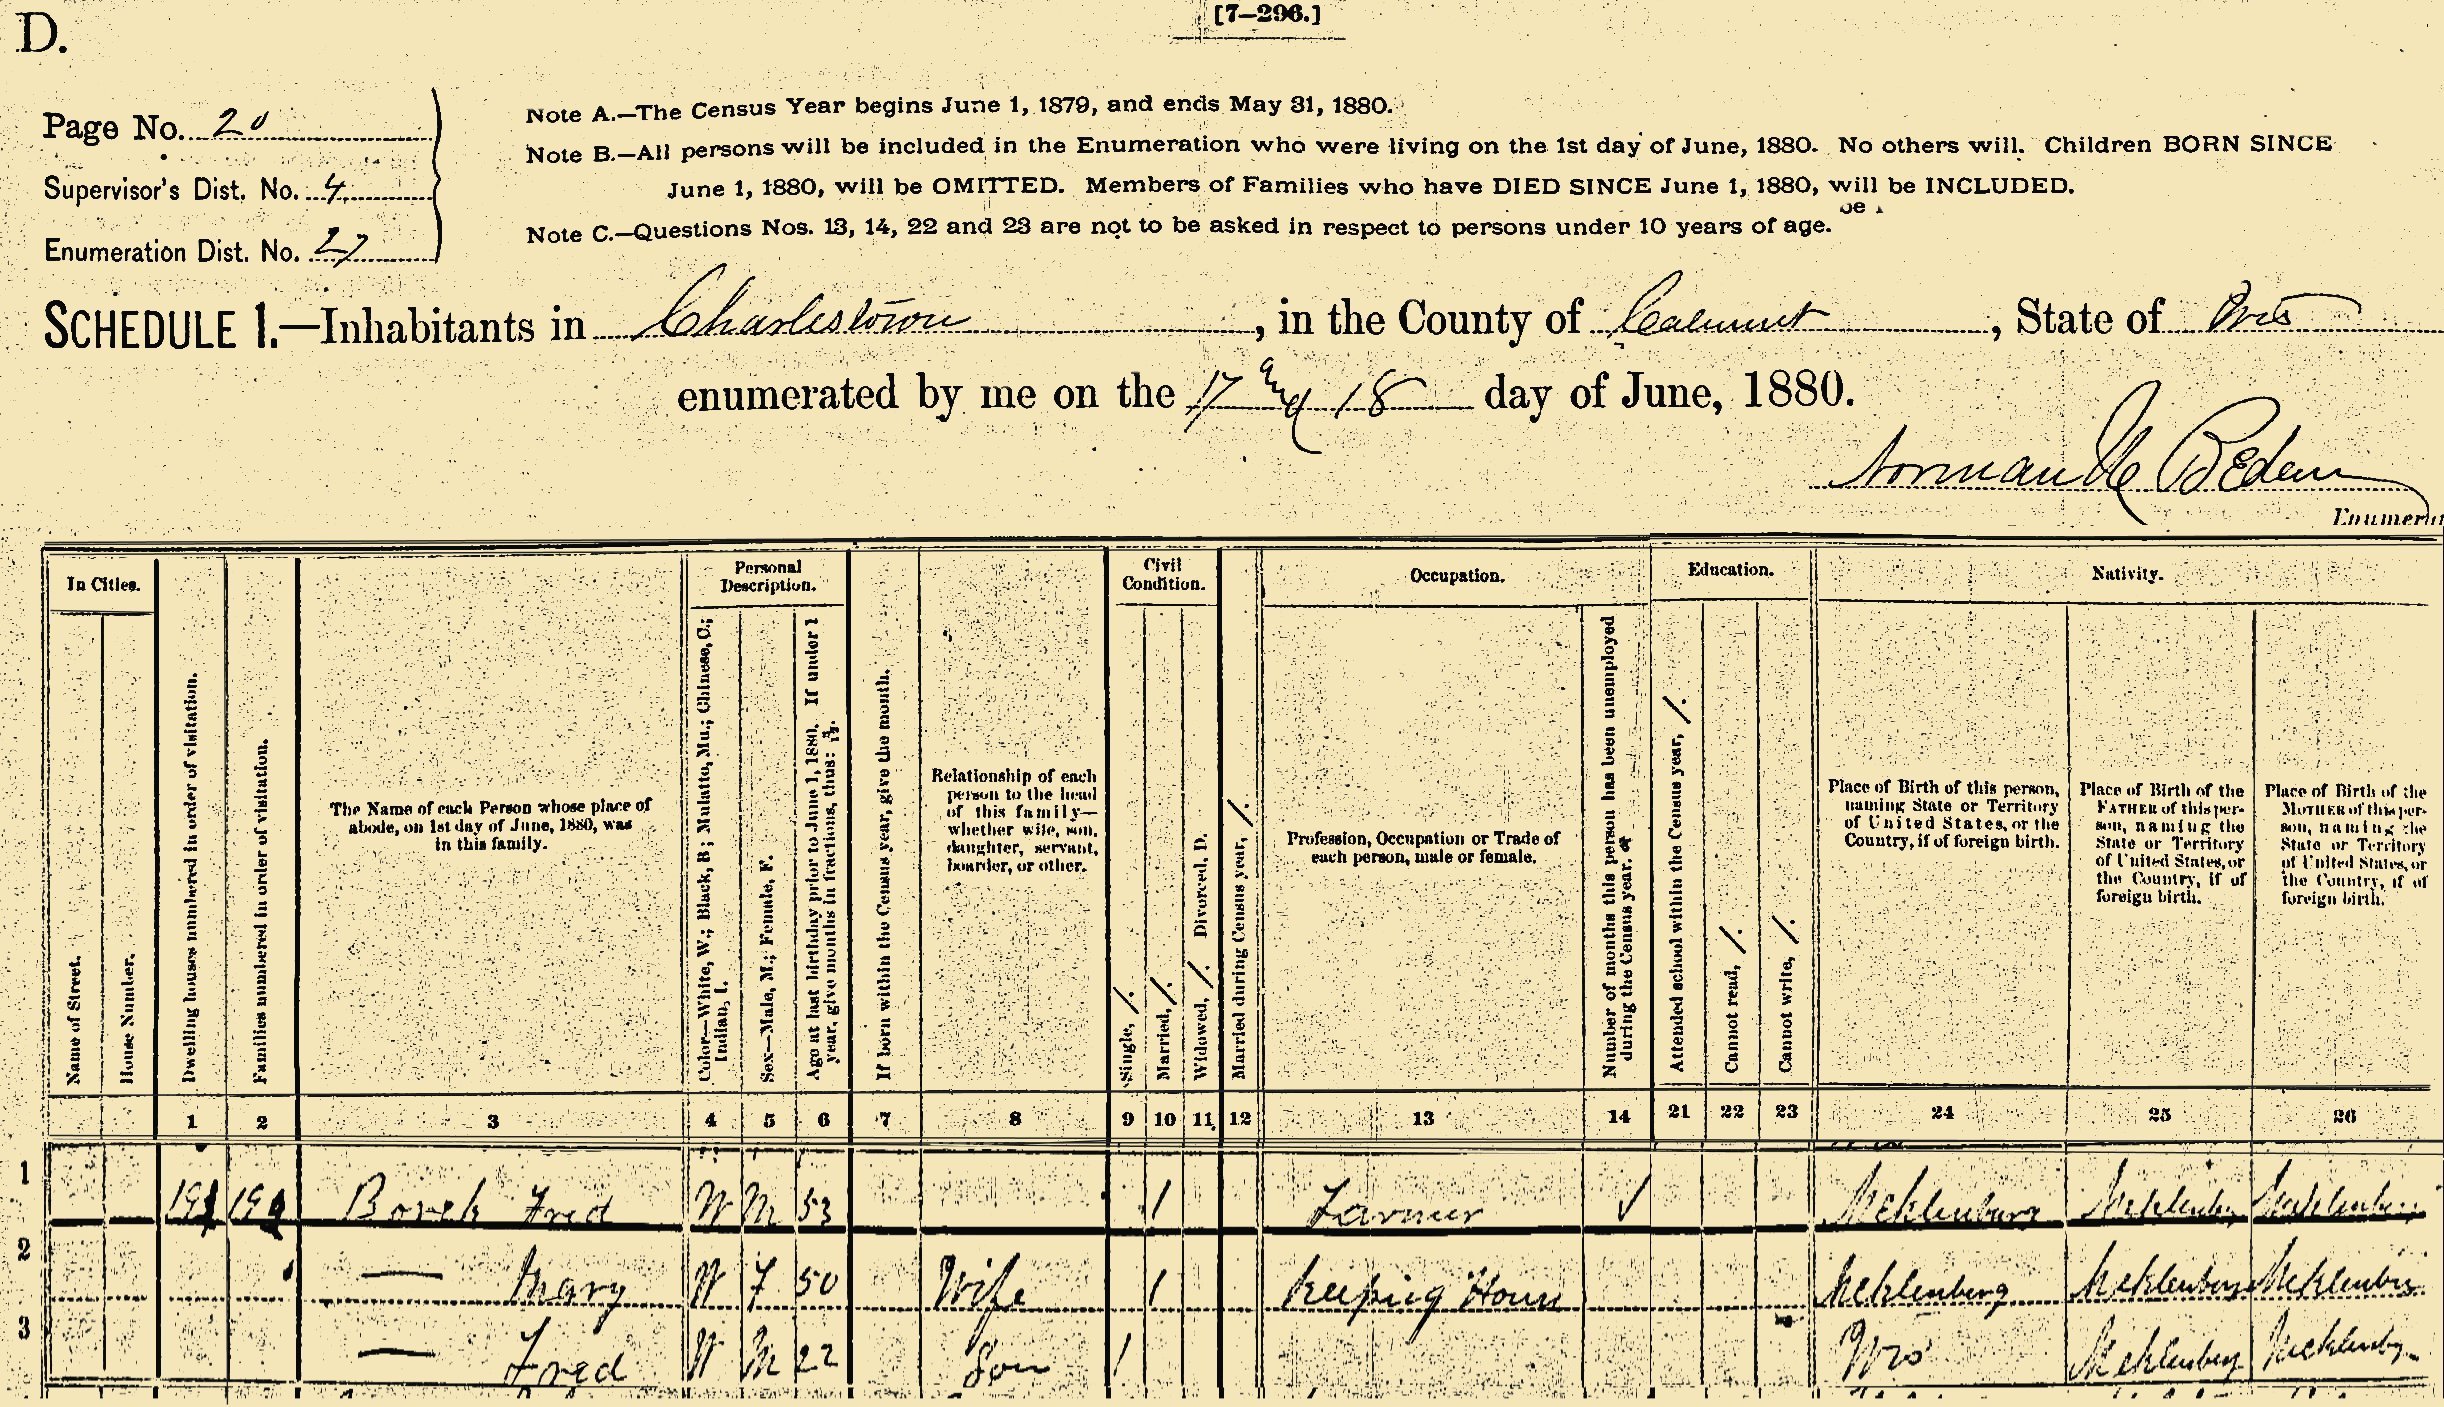 [7–296.]
D.
Page No. 20
Supervisor's Dist. No. 4
Enumeration Dist. No. 27
Note A.—The Census Year begins June 1, 1879, and ends May 31, 1880.
Note B.—All persons will be included in the Enumeration who were living on the 1st day of June, 1880. No others will. Children BORN SINCE
June 1, 1880, will be OMITTED. Members of Families who have DIED SINCE June 1, 1880, will be INCLUDED.
be
Note C.—Questions Nos. 13, 14, 22 and 23 are not to be asked in respect to persons under 10 years of age.
SCHEDULE 1.—Inhabitants in Charlestown, in the County of Calumet, State of Wis
enumerated by me on the 17 and 18 day of June, 1880.
Norman
Enumer
In Cities.
Name of Street.
House Number.
Dwelling houses numbered in order of visitation.
Families numbered in order of visitation.
The Name of each Person whose place of
abode, on 1st day of June, 1880, was
in this family.
Personal
Description.
Color—White, W.; Black, B; Mulatto, Mu.; Chinese, C.;
Indian, I.
Sex—Male, M.; Female, F.
Age at last birthday prior to June 1, 1880. If under 1
year, give months in fractions, thus: 3/12.
If born within the Census year, give the month.
Relationship of each
person to the head
of this family—
whether wife, son,
daughter, servant,
boarder, or other.
Civil
Condition.
Single, /.
Married, /.
Widowed, /. Divorced, D.
Married during Census year, /.
Occupation.
Profession, Occupation or Trade of
each person, male or female.
Number of months this person has been unemployed
during the Census year.
Education.
Attended school within the Census year, /.
Cannot read, /.
Cannot write, /.
Nativity.
Place of Birth of this person,
naming State or Territory
of United States, or the
Country, if of foreign birth.
Place of Birth of the
FATHER of this per-
son, naming the
State or Territory
of United States, or
the Country, if of
foreign birth.
Place of Birth of the
MOTHER of this per-
son, naming the
State or Territory
of United States, or
the Country, if of
foreign birth.
1 2 3 4 5 6 7 8 9 10 11 12 13 14 21 22 23 24 25 26
1 Borck Fred W M 53 / Farmer ✓ Meklenburg Meklenburg Meklenburg
2 — Mary W F 50 Wife / Keeping House Meklenburg Meklenburg Meklenburg
3 — Fred W M 22 Son / Wis Meklenburg Mecklenbg